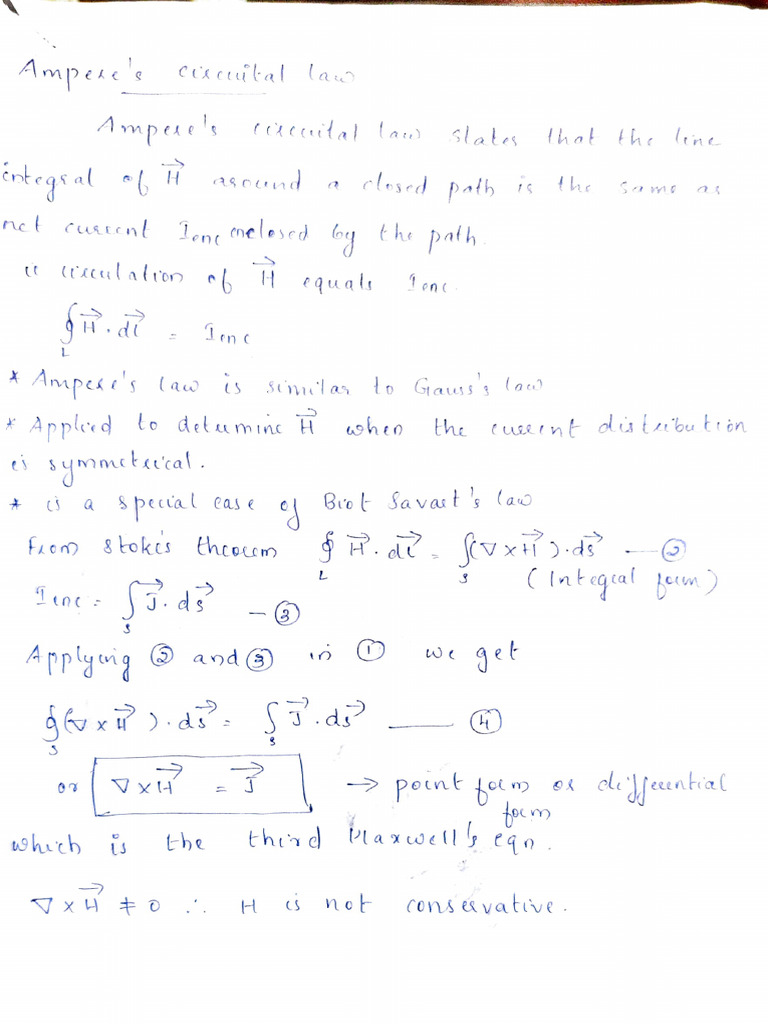 Ampere's circuital law
Ampere's circuital law states that the line
integral of H⃗ around a closed path is the same as
net current Ienc enclosed by the path.
ie circulation of H⃗ equals Ienc.
∮L H⃗ . dl⃗ = Ienc
* Ampere's law is similar to Gauss's law
* Applied to determine H⃗ when the current distribution
is symmetrical.
* is a special case of Biot Savart's law
From stoke's theorem ∮L H⃗ . dl⃗ = ∫s (∇ x H⃗ ) . ds⃗ — ②
(Integral form)
Ienc = ∫s J⃗ . ds⃗ — ③
Applying ② and ③ in ① we get
∮s (∇ x H⃗ ) . ds⃗ = ∫s J⃗ . ds⃗ —— ④
or ∇ x H⃗ = J⃗ → point form or differential
form
which is the third Maxwell's eqn.
∇ x H⃗ ≠ 0 ∴ H is not conservative.